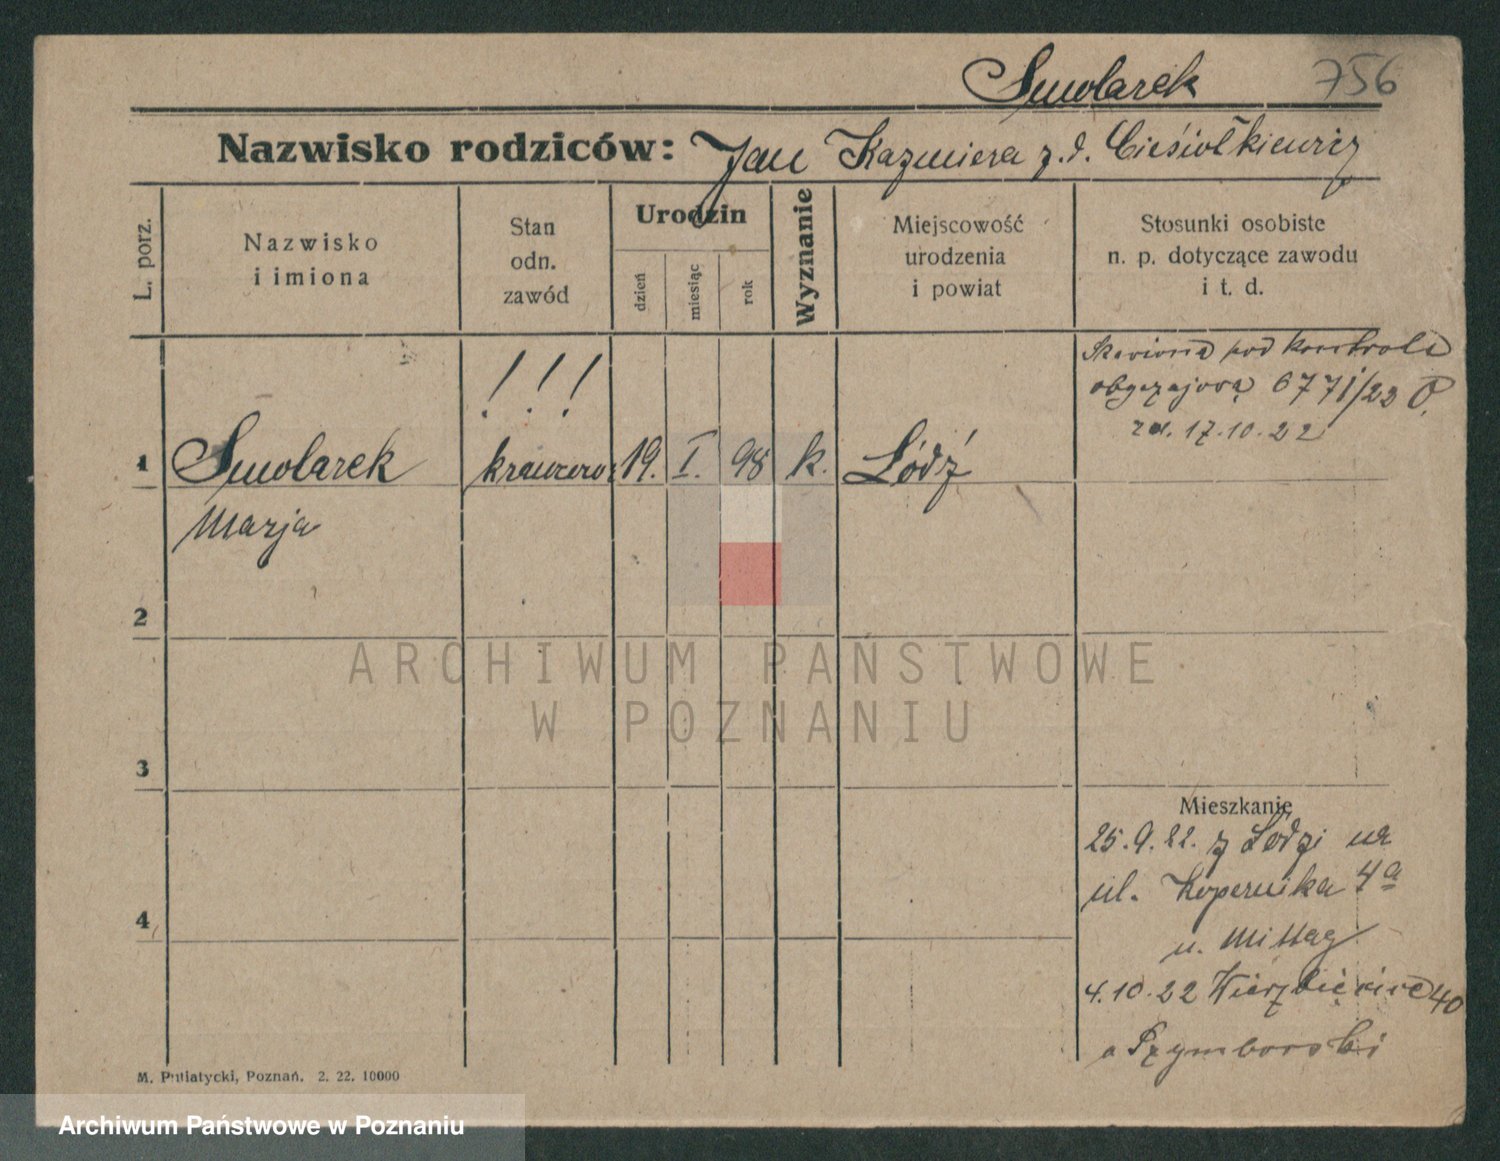 Smolarek 756
Nazwisko rodziców: Jan Kazmiera z.d. Cieśiołkiewicz
L. porz.
Nazwisko
i imiona
Stan
odn.
zawód
Urodzin
dzień
miesiąc
rok
Wyznanie
Miejscowość
urodzenia
i powiat
Stosunki osobiste
n. p. dotyczące zawodu
i t. d.
! ! !
pod kontrole
obyczajową 6771/22
17.10.22
1 Smolarek 19. I. 98 k. Łódź
Marja
2
ARCHIWUM PAŃSTWOWE
W POZNANIU
3
Mieszkanie
25.9.22. z Łodzi na
ul. Kopernika 4a
u. Mittag
4
4.10.22 40
Szymborski
M. Putiatycki, Poznań. 2. 22. 10000
Archiwum Państwowe w Poznaniu